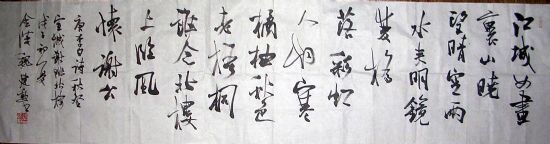 江城如畫
裏山曉
望晴空兩
水夾明鏡
雙橋
落彩虹
人烟寒
橘柚秋色
老梧桐
誰念北樓
上臨風
懷謝公
唐李白詩秋登
宣城謝朓北樓
戊子初冬
金陵